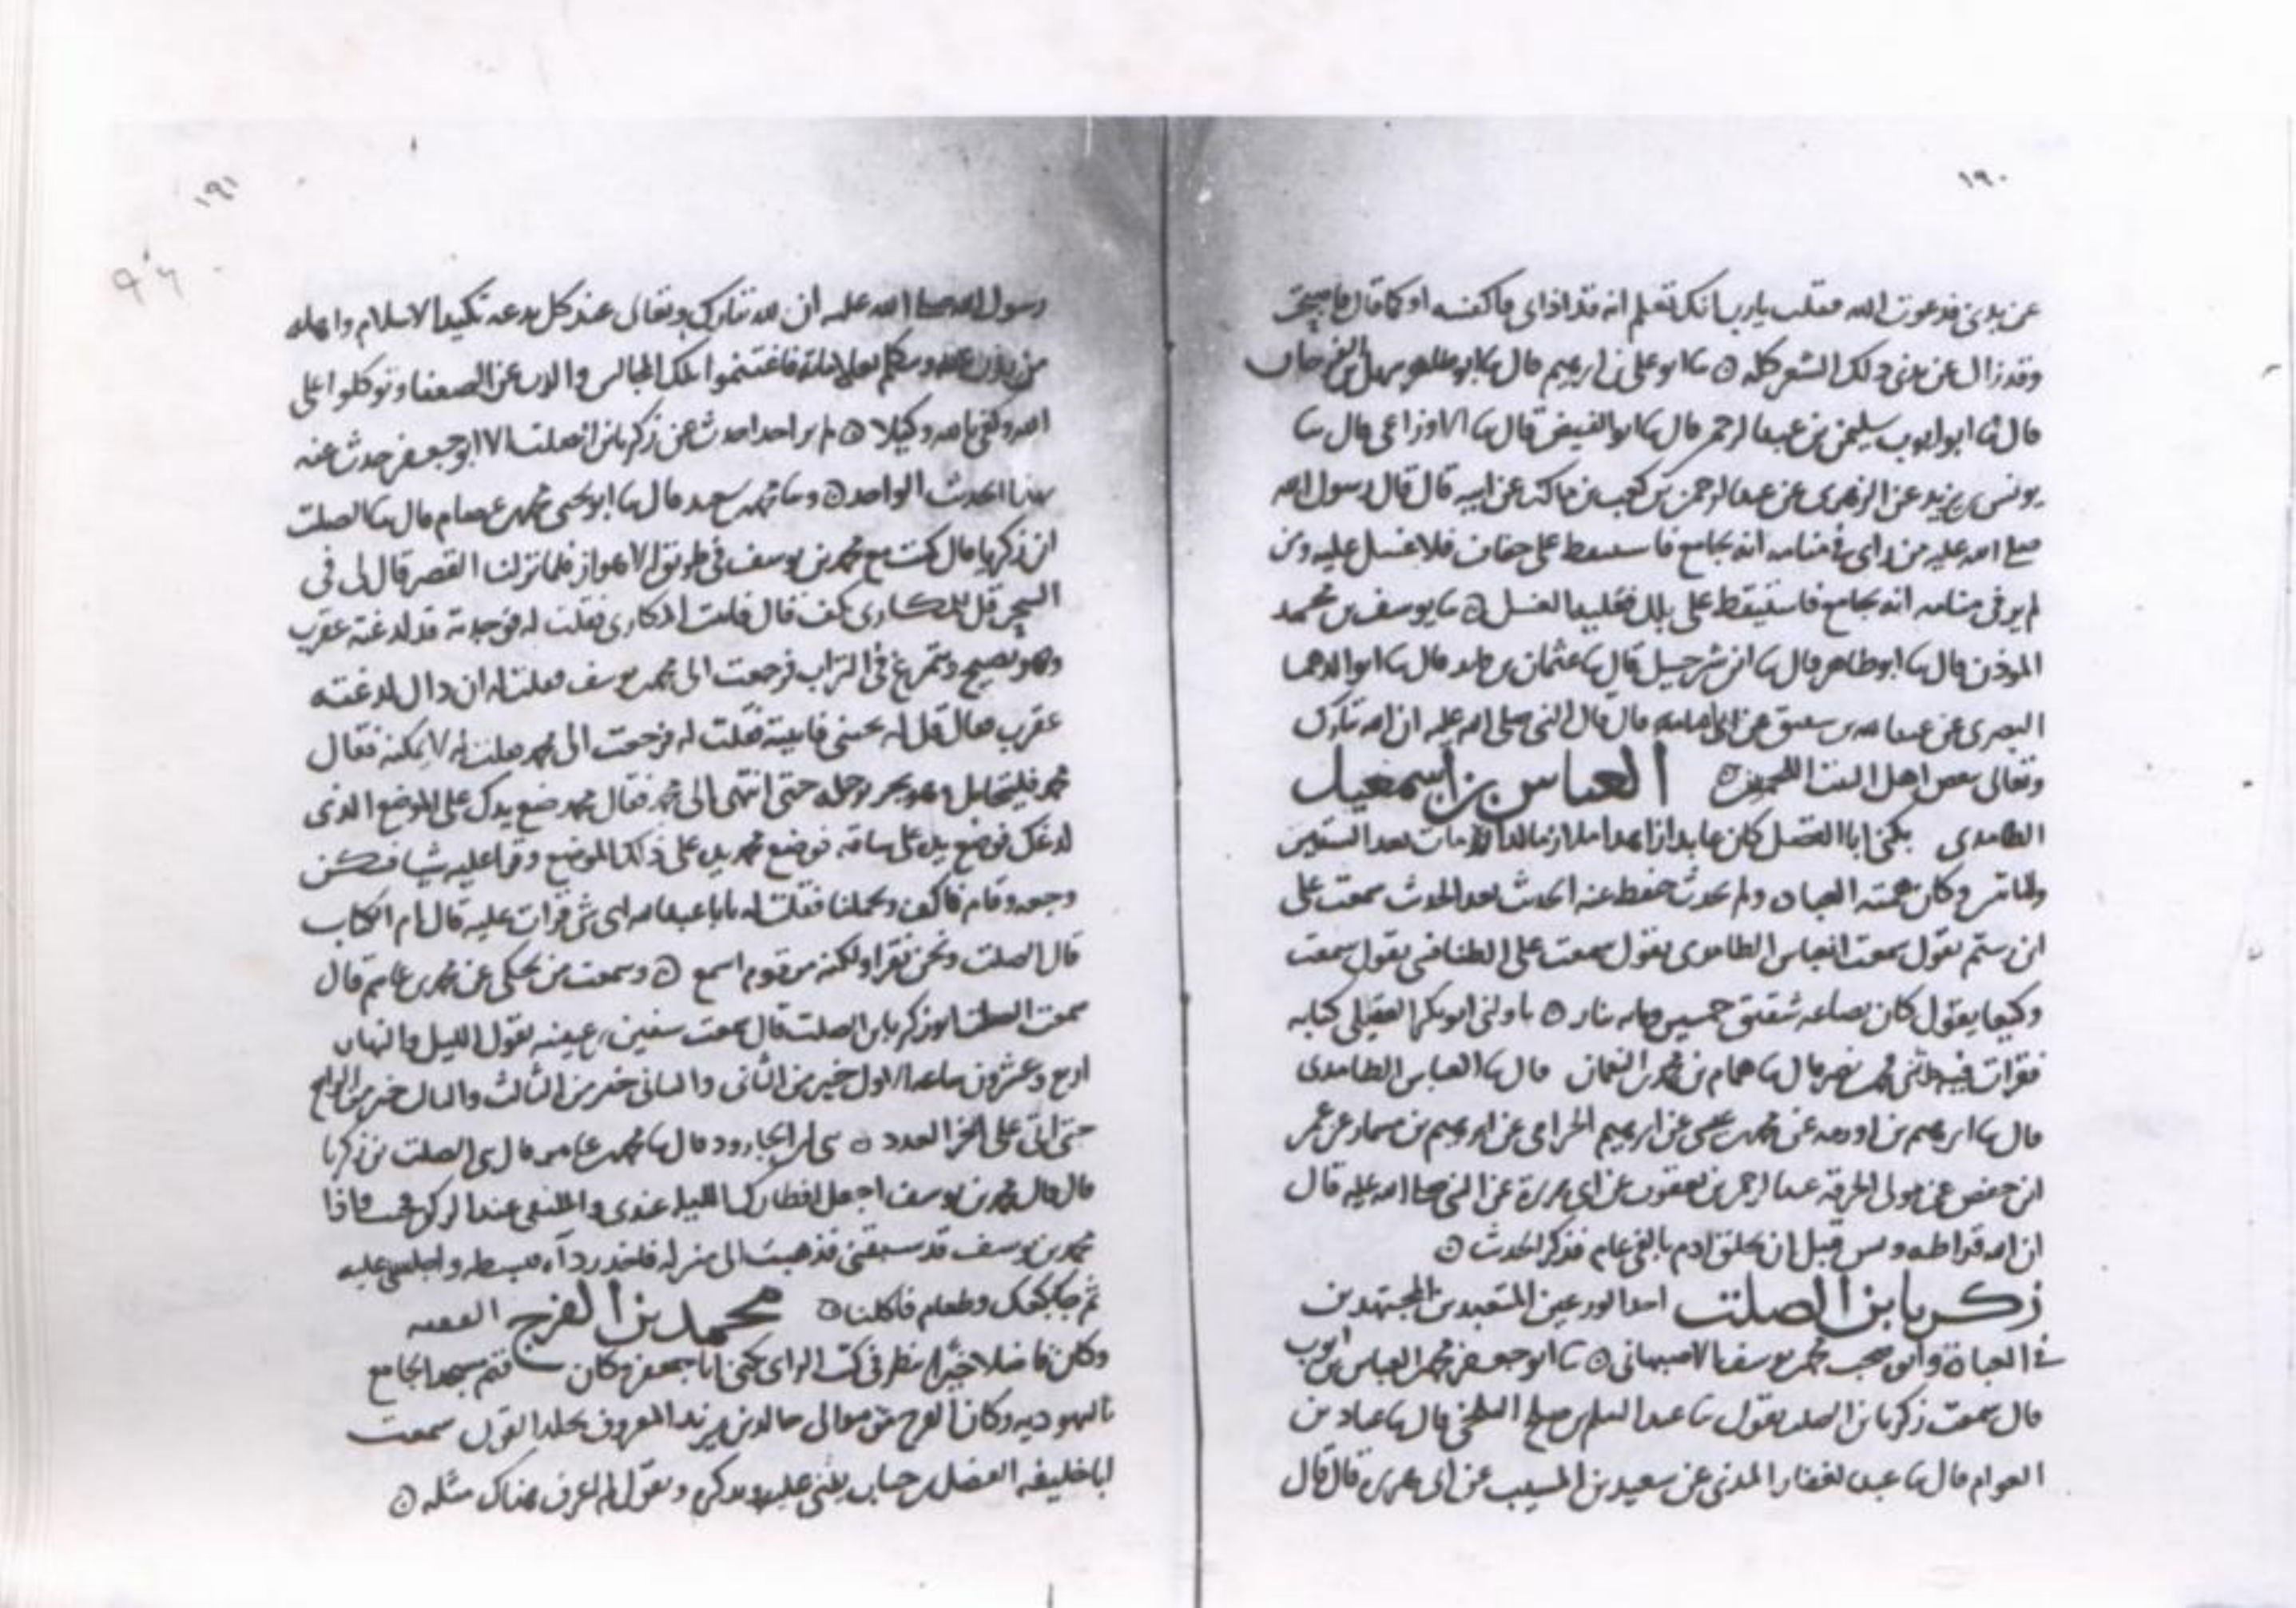 ١٩٠
عن بدني فدعوت الله فقلت يارب انك تعلم انه قد اذاني فاكفنيه او كما قال فاصبحت
وقد زال عن بدني ذلك الشعر كله ۞ ثنا ابو علي بن ابرهيم قال ثنا ابو طاهر سهل بن الفرخان
قال ثنا ابو ايوب سليمن بن عبد الرحمن قال ثنا ابو الفيض قال ثنا الاوزاعي قال ثنا
يونس بن يزيد عن الزهري عن عبد الرحمن بن كعب بن مالك عن ابيه قال قال رسول الله
صلى الله عليه من راى في منامه انه يجامع فاستيقظ على جفاف فلا غسل عليه ومن
لم ير في منامه انه يجامع فاستيقظ على بلل فعليه الغسل ۞ ثنا يوسف بن محمد
الموذن قال ثنا ابو طاهر قال ثنا ابن شرحبيل قال ثنا عثمان بن فايد قال ثنا ابو الدهما
البصري عن عبد الله بن شقيق عن ابي امامة قال قال النبي صلى الله عليه ان الله تبارك
وتعالى يبغض اهل البيت اللحمين ۞ العباس بن اسمعيل
الطامدي يكنى ابا الفضل كان عابدا زاهدا مات بعد الستين
والماتين وكان همته العبادة ولم يحدث حفظ عنه الحديث بعد الحديث سمعت علي
ابن رستم يقول سمعت العباس الطامدي يقول سمعت علي الطنافسي يقول سمعت
وكيعا يقول كان بضاعة شقيق خمسين ومايه دينار ۞ ناولني ابو بكر العقيلي كتابه
فقرات فيه حدثني محمد بن نصر قال ثنا همام بن محمد بن النعمان قال ثنا العباس الطامدي
قال ثنا ابرهيم بن اورمه عن محمد بن عيسى عن ابرهيم الحزامي عن ابرهيم بن مهاجر عن عمر
ابن حفص عن مولى الحرقة عبد الرحمن بن يعقوب عن ابي هريرة عن النبي صلى الله عليه قال
ان الله قرا طه ويس قبل ان يخلق ادم بالفي عام فذكر الحديث ۞
زكريا بن الصلت احد الورعين المتعبدين المجتهدين
في العبادة وابن صحب محمد بن يوسف الاصبهاني ۞ ثنا ابو جعفر محمد بن العباس بن ايوب
قال سمعت زكريا بن الصلت يقول ثنا عبد السلم بن صالح قال ثنا عباد بن
العوام قال ثنا عبد الغفار المدني عن سعيد بن المسيب عن ابي هريرة قال قال
١٩١
رسول الله صلى الله عليه ان لله تبارك وتعالى عند كل بدعة تكيد الاسلام واهله
من يذب عنه ويتكلم بعلاماته فاغتنموا تلك المجالس والذب عن الضعفا وتوكلوا على
الله وكفى بالله وكيلا ۞ لم ير احد احدث عن زكريا بن الصلت الا ابو جعفر حدث عنه
بهذا الحديث الواحد ۞ وثنا محمد بن سعيد قال ثنا ابو يحيى محمد بن عصام قال ثنا الصلت
ابن زكريا قال كنت مع محمد بن يوسف في طريق الاهواز فلما نزلنا القصر قال لي في
السحر قل للمكاري يكف قال فاتيت المكاري فقلت له فوجدته قد لدغته عقرب
وهو يصيح ويتمرغ في التراب فرجعت الى محمد بن يوسف فقلت له ان ذاك لدغته
عقرب فقال قل له يجيني فاتيته فقلت له فرجعت الى محمد فقلت له لا يمكنه فقال
محمد فليتحامل وهو يجر رجله حتى انتهى الى محمد فقال محمد ضع يدك على الموضع الذي
لدغك فوضع يده على ساقه فوضع محمد يده على ذلك الموضع وقرا عليه شيا فسكن
وجعه وقام فاكف وحملنا فقلت له يابا عبد الله اي شي قرات عليه قال ام الكتاب
قال الصلت ونحن نقرا ولكنه من قوم اسمع ۞ وسمعت من يحكي عن محمد بن عامر قال
سمعت الصلت بن زكريا بن الصلت قال سمعت سفين بن عيينه يقول الليل والنهار
اربع وعشرون ساعة الاول خير من الثاني والثاني خير من الثالث والثالث خير من الرابع
حتى اتى على اخر العدد ۞ ثنا ابن الجارود قال ثنا محمد بن عامر قال ثنا الصلت بن زكريا
قال قال محمد بن يوسف اجعل افطارك الليلة عندي فاذا
محمد بن يوسف قد سبقني فذهبت الى منزله فاخذ رداه فبسطه واجلسني عليه
ثم جا بكعك وطعام فاكلنا ۞ محمد بن الفرج الفقيه
وكان فاضلا خيرا ينظر في كتب الراي يكنى ابا جعفر وكان قيم مسجد الجامع
باليهوديه وكان الفرج من موالي خالد بن يزيد المعروف سمعت
ابا خليفه الفضل بن حباب يثني عليه ويذكره ويقول لم اعرف هناك مثله ۞